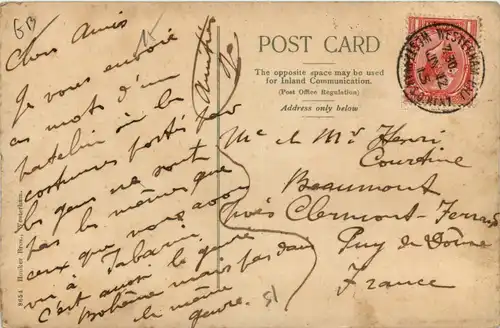 GB
15
Chers Amis
Je vous envoie
ce mot d'un
patelin où les
costumes portés par
les gens ne sont
pas les mêmes que
ceux que nous avons
vu à Tabarin
c'est aussi le genre
Bohème mais pas dans
le même
genre.
51
POST CARD
The opposite space may be used
for Inland Communication.
(Post Office Regulation)
Address only below
Mr et Mr Henri
Courtine
Beaumont
près Clermont-Ferrand
Puy de Dôme
France
8654 Hooker Bros., Westerham.
WESTERHAM
12